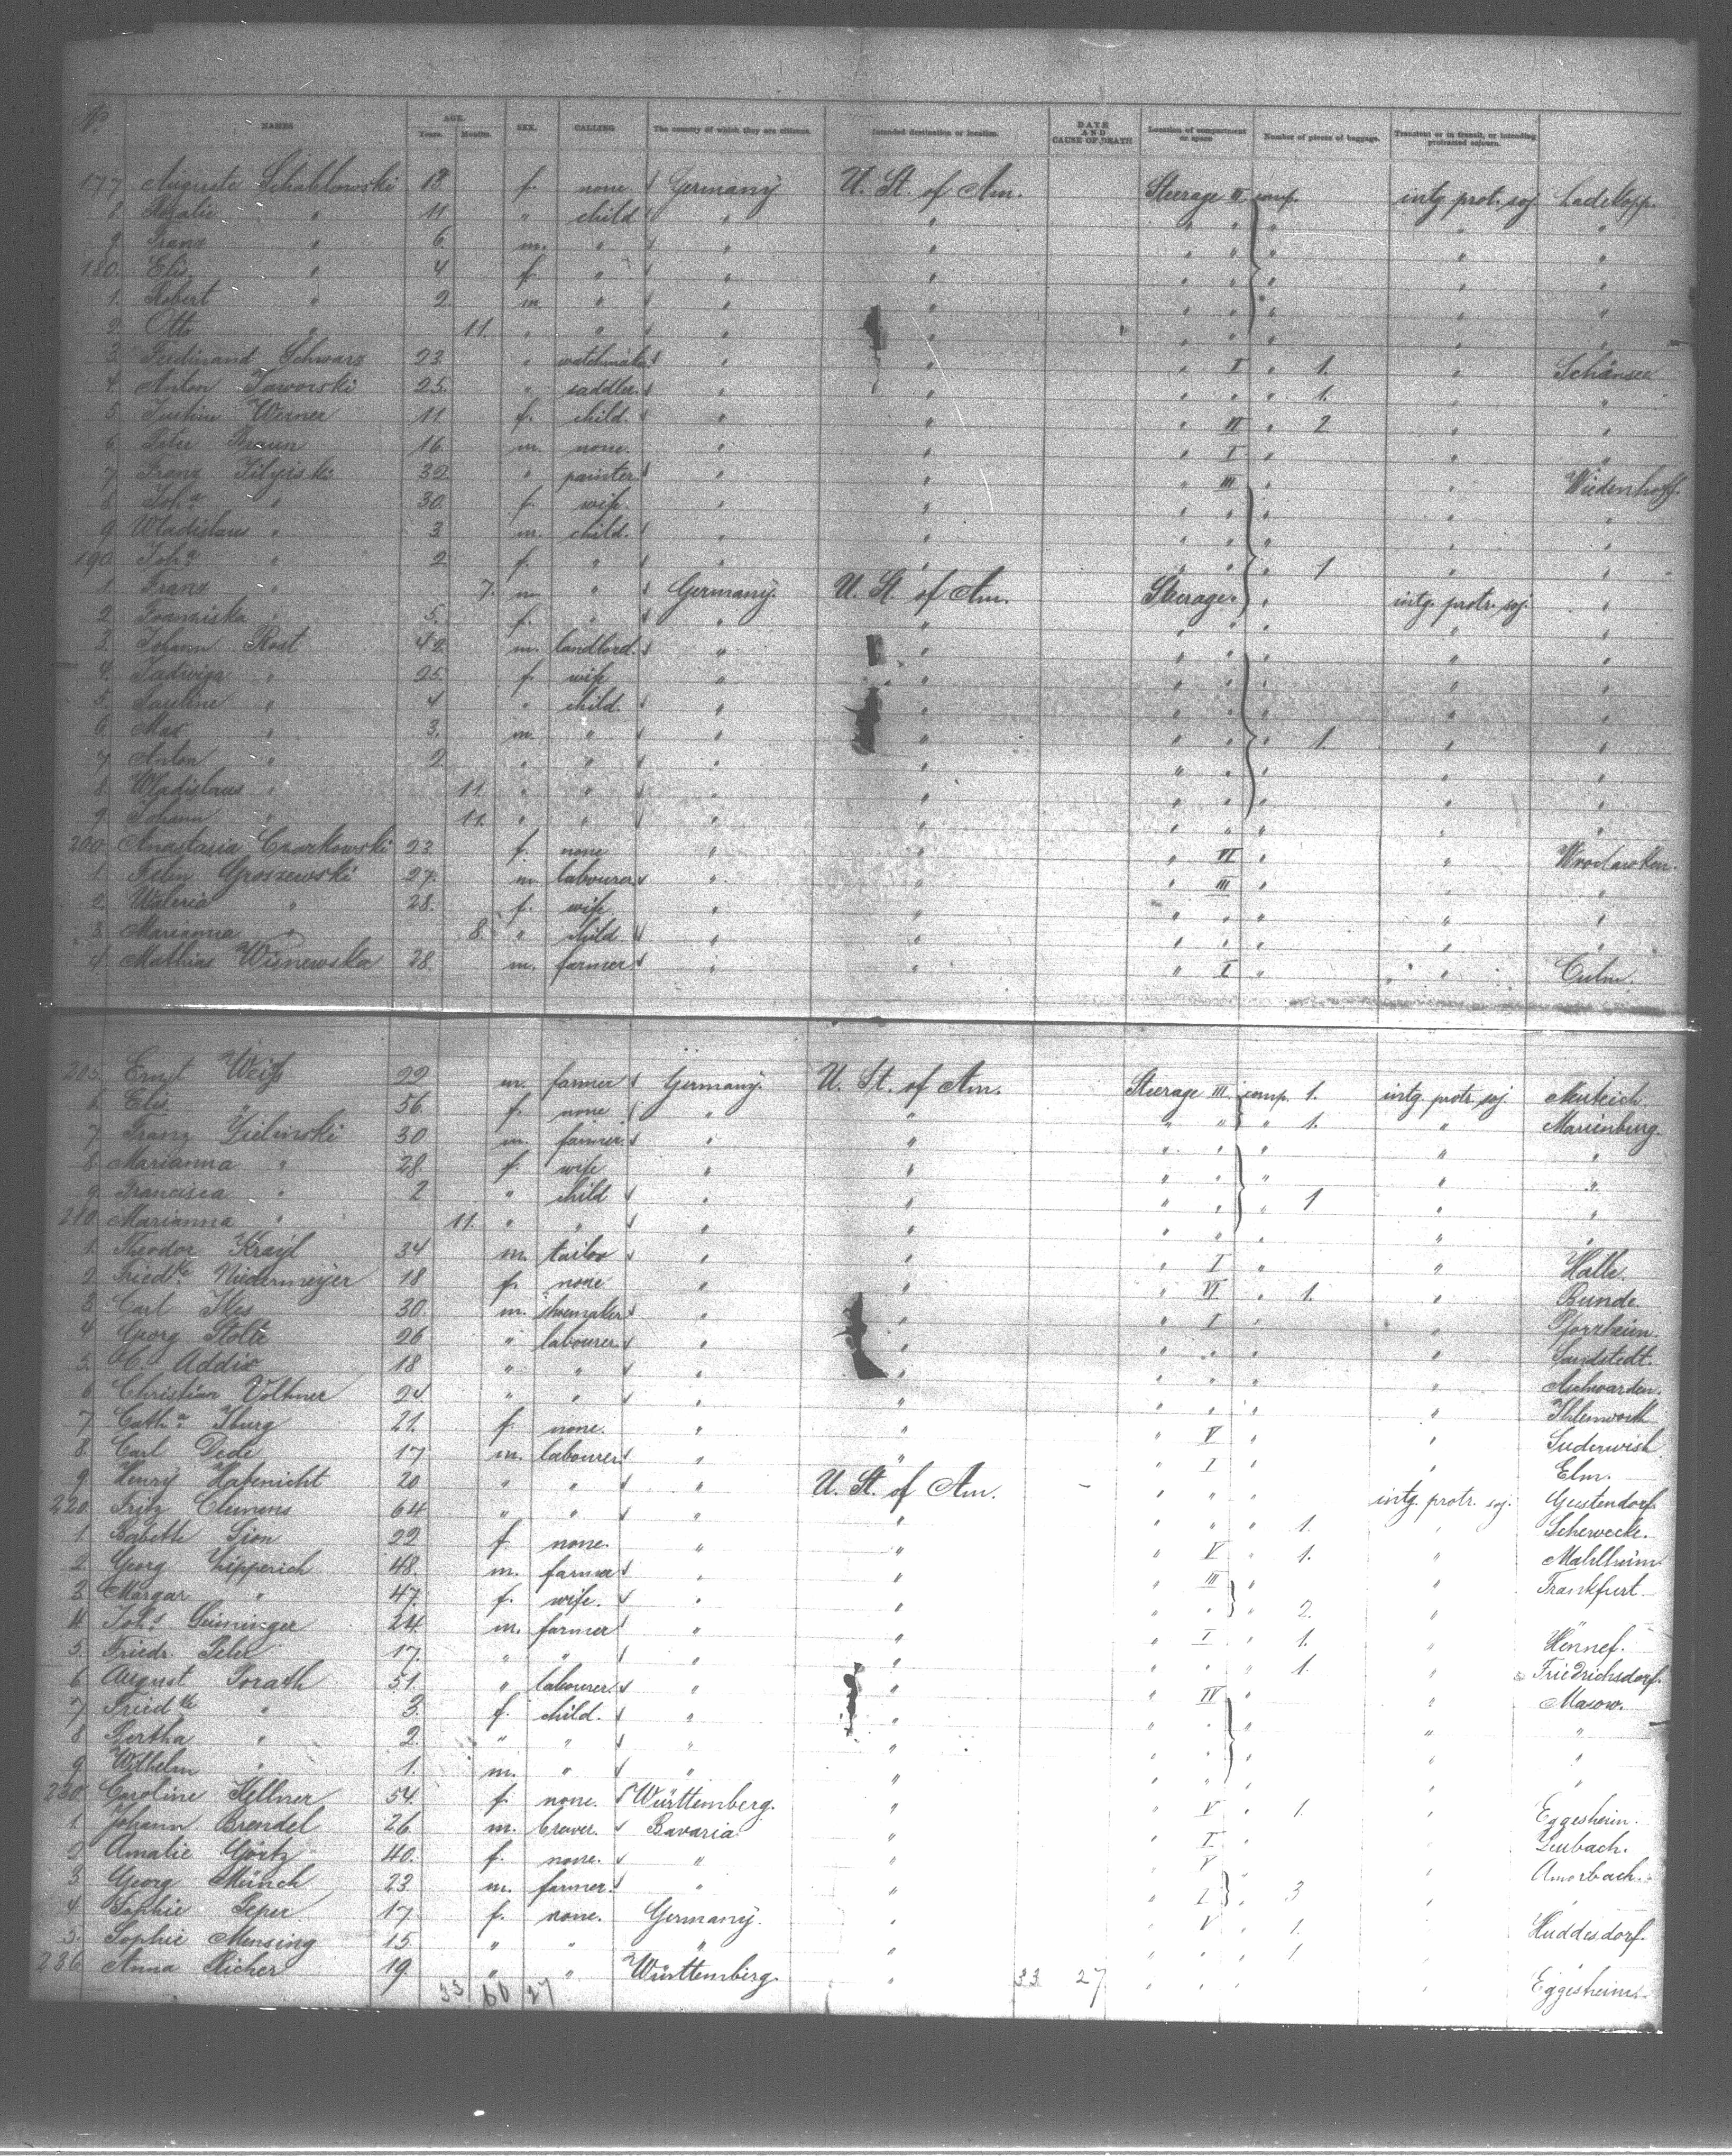 No. NAMES AGE. Years. Months. SEX. CALLING The country of which they are citizens. Intended destination or location. DATE AND CAUSE OF DEATH Location of compartment or space Number of pieces of baggage. Transient or in transit, or intending protracted sojourn.
177 Auguste Schablowski 18. f. none Germany U. St. of Am. Steerage comp. intg. prot. soj. Ladekopp.
8. Rosalie " 11 " child " " " " " " "
9. Franz " 6. m. " " " " " " " "
180. Elis. " 4 f. " " " " " " " "
1. Robert " 2. m. " " " " " " " "
2. Otto " 11. " " " " " " " " "
3. Ferdinand Schwarz 23. " watchmaker " " " I " 1. " Schönsee
4. Anton Jaworski 25. " saddler " " " " " 1. " "
5. Justine Werner 11. f. child. " " " VI " 2 " "
6. Peter Braun 16. m. none. " " " I " " "
7. Franz 32. " painter " " " III " " Wiedenhoff.
8. Joh.a " 30. f. wife. " " " " " " "
9. Wladislaus " 3 m. child. " " " " " " "
190. Joh.a " 2 f. " " " " " " 1 " "
1. Franz " 7. m. " Germany. U. St. of Am. Steerage. " intg. protr. soj. "
2 Franziska " 5. f. " " " " " " " "
3. Johann Rost 42. m. landlord. " " " " " " "
4. Jadwiga " 25. f. wife " " " " " " "
5. Pauline " 4 " child. " " " " " " "
6. Max " 3. m. " " " " " " 1. " "
7. Anton " 2. " " " " " " " " "
8. Wladislaus " 11. " " " " " " " " "
9. Johann " 11. " " " " " " " " "
200 Anastasia Czarkowski 23. f. none " " " VI " "
1. Felix Groszewski 27. m. labourer " " " III " " "
2. Waleria " 28. f. wife " " " " " " "
3. Marianna " 8. " child " " " " " " "
4 Mathias Wisnewska 28. m. farmer " " " I " " Culm.
205. Ernst Weiß 22 m. farmer Germany. U. St. of Am. Steerage III. comp. 1. intg. protr. soj. Neuteich.
6. Elis. " 56. f. none " " " " " 1. " Marienburg.
7. Franz Zielinski 30 m. farmer " " " " " " "
8. Marianna " 28. f. wife " " " " " " "
9. Francisca " 2 " child " " " " " 1 " "
210. Marianna " 11. " " " " " " " " "
1. Theodor 34 m. tailor " " " I " " Halle.
2. Fried.ke Niedermeyer 18 f. none " " " VI " 1. " Bunde.
3. Carl 30. m. shoemaker " " " I " " Pforzheim.
4 Georg Stolte 26 " labourer " " " " " " Sandstedt.
5. C. Addix 18 " " " " " " " " Aschwarden.
6 Christian Voltmer 24. " " " " " " " " Ihlenworth
7 Cath.a Iburg 21. f. none. " " " V " " Suderwish
8. Carl Dede 17 m. labourer " " " I " " Elm.
9. Henry Habenicht 20 " " " U. St. of Am. " " " intg. protr. soj. Geestendorf.
220. Fritz Clemens 64 " " " " " " " 1. "
1. Babeth 22 f. none. " " " V " 1. " Mahlheim
2. Georg Lipperich 48. m. farmer " " " III " " Frankfurt.
3. Margar " 47. f. wife. " " " " " 2. "
4. Joh.s 24. m. farmer " " " I " 1. " Hennef.
5. Friedr. Peter 17. " " " " " " " 1. " Friedrichsdorf.
6 August Porath 51. " labourer " " " IV " " Masow.
7 Fried.ke " 3. f. child. " " " " " " "
8 Bertha " 2. " " " " " " " " "
9. Wilhelm " 1. m. " " " " " " " "
230. Caroline Kellner 54. f. none. Württemberg. " " V " 1. " Eggesheim.
1. Johann Brendel 26. m. brewer. Bavaria " " I " " Leubach.
2 Amalie Görtz 40. f. none. " " " V " Amorbach.
3. Georg Münch 23. m. farmer. " " " I " 3 " "
4 Sophie Peper 17. f. none. Germany. " " V " 1. Huddesdorf.
5. Sophie Mensing 15. " " " " " " " 1. " "
236. Anna Richer 19. " " Württemberg. " 33 27 " " " " Eggesheim.
33 60 27